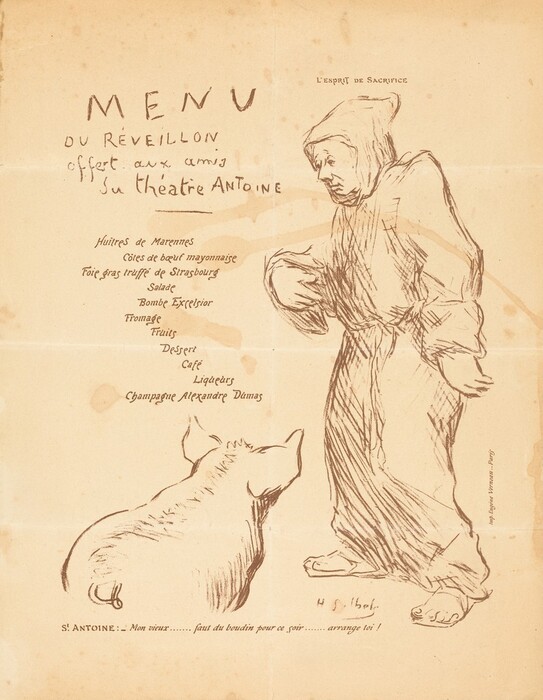 L'ESPRIT DE SACRIFICE
MENU
DU RÉVEILLON
offert aux amis
du théatre ANTOINE
Huîtres de Marennes
Côtes de bœuf mayonnaise
Foie gras truffé de Strasbourg
Salade
Bombe Excelsior
Fromage
Fruits
Dessert
Café
Liqueurs
Champagne Alexandre Dumas
Imp. Eugène Verneau _ Paris
St ANTOINE:_ Mon vieux....... faut du boudin pour ce soir....... arrange toi !